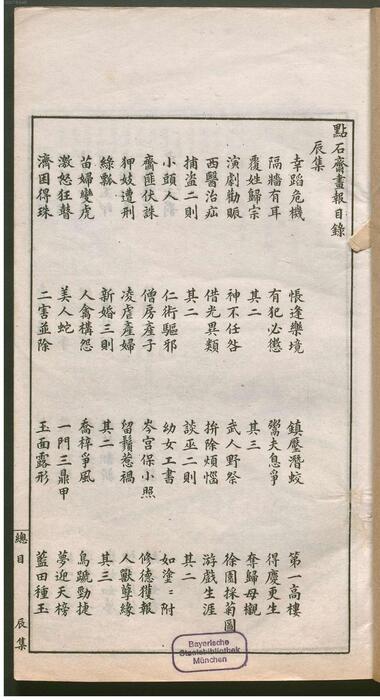 點石齋畫報目錄
辰集
幸蹈危機 悵逢樂境 鎮壓潛蛟 第一高樓
隔牆有耳 有犯必懲 鬻夫息爭 得慶更生
覆姓歸宗 其二 其三 奪歸母櫬
演劇勸賑 神不任咎 武人野祭 徐園採菊圖
西醫治疝 借光異類 拚除煩惱 游戲生涯
捕盜二則 其二 談巫二則 其二
小頭人 仁術驅邪 幼女工書 如塗〻附
齋匪伏誅 僧房產子 岑宮保小照 修德獲報
狎妓遭刑 凌虐產婦 留鬚惹禍 人獸孽緣
綠瓢 新婚三則 其二 其三
苗婦變虎 人禽構怨 喬梓爭風 勁捷
激怒狂瞽 美人蛇 一門三鼎甲 夢迎天榜
濟困得珠 二害並除 玉面露形 藍田種玉
總目 辰集
Bayerische
Staatsbibliothek
München